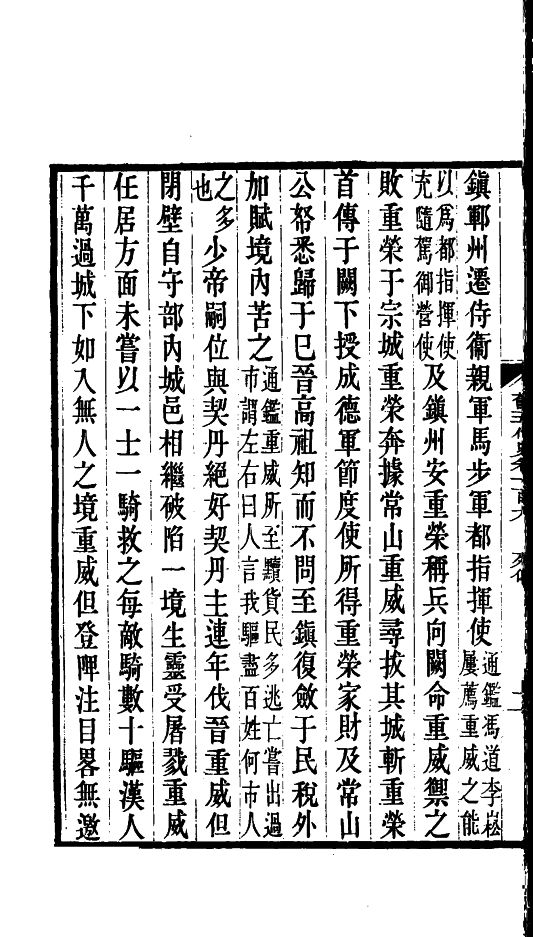 鎭鄆州遷侍衞親軍馬步軍都指揮使通鑑馮道李崧屢薦重威之能
以爲都指揮使充隨駕御營使及鎭州安重榮稱兵向闕命重威禦之
敗重榮于宗城重榮奔據常山重威尋拔其城斬重榮
首傳于闕下授成德軍節度使所得重榮家財及常山
公帑悉歸于己晉高祖知而不問至鎭復斂于民稅外
加賦境內苦之通鑑重威所至黷貨民多逃亡嘗出過市謂左右曰人言我驅盡百姓何市人
之多也少帝嗣位與契丹絕好契丹主連年伐晉重威但
閉壁自守部內城邑相繼破陷一境生靈受屠戮重威
任居方面未嘗以一士一騎救之每敵騎數十驅漢人
千萬過城下如入無人之境重威但登陴注目畧無邀